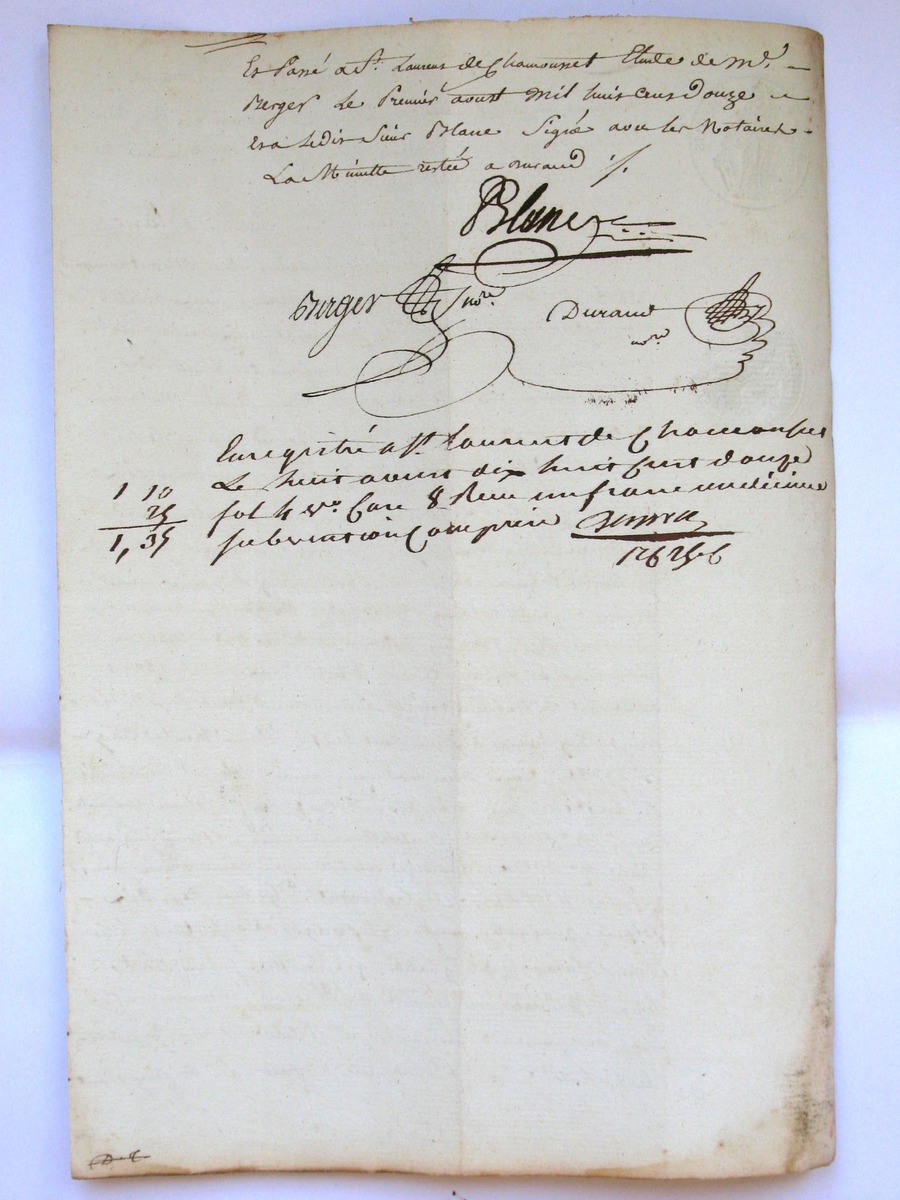 Et Passé a St. Laurens de Chamousset Etude de Me.
Berger Le Premier aoust Mil huit Cens Douze
Et a Ledit Sieur Blanc Signé avec les Notaires
La Minutte restée a Durand ./.
Blanc
Berger nore
Durand
nore
Enregistré a St. Laurent de Chamousset
Le huit aoust dix huit Cent douze
1 10 fol 4 vo. Case 8 Reçu un franc un décime
25 subvention Comprise
1,35